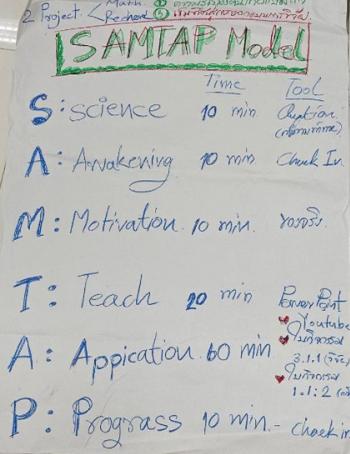 2 Project Math
Rechard
SAMTAP Model
Time Tool
S: science 10 min
A: Awakening 10 min Check In
M: Motivation. 10 min. ของจริง
T: Teach 20 min PowerPoint
Youtube
A: Appication. 60 min ใบกิจกรรม
3.1.1
ใบกิจกรรม
1.1:2
P: Prograss 10 min.- check in